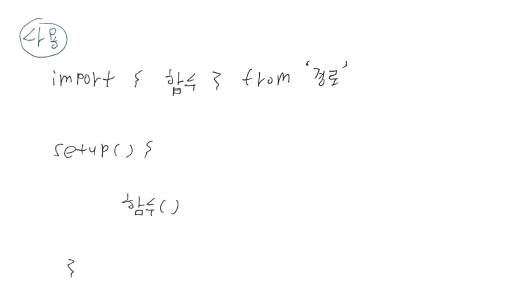 사용
import { 함수 } from '경로'
setup() {
함수()
}